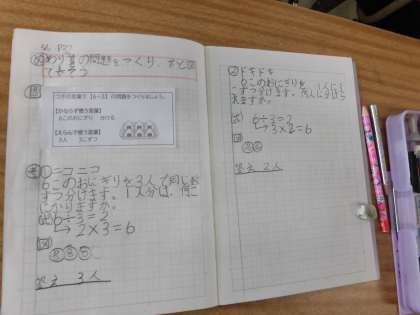 わり算の問題をつくり、式と図
でとこう
コトの言葉で【6÷3】の問題をつくりましょう。
【かならず使う言葉】
6このおにぎり 分ける
【えらんで使う言葉】
3人 3こずつ
①ニコニコ
6このおにぎりを3人で同じ数
ずつ分けます。1人分は、何こ
になりますか。
式 6÷3=2
2×3=6
図
答え 3人
②ドキドキ
6このおにぎりを
ずつ分けます。
れますか。
式 6÷3=2
3×2=6
図
答え 2人